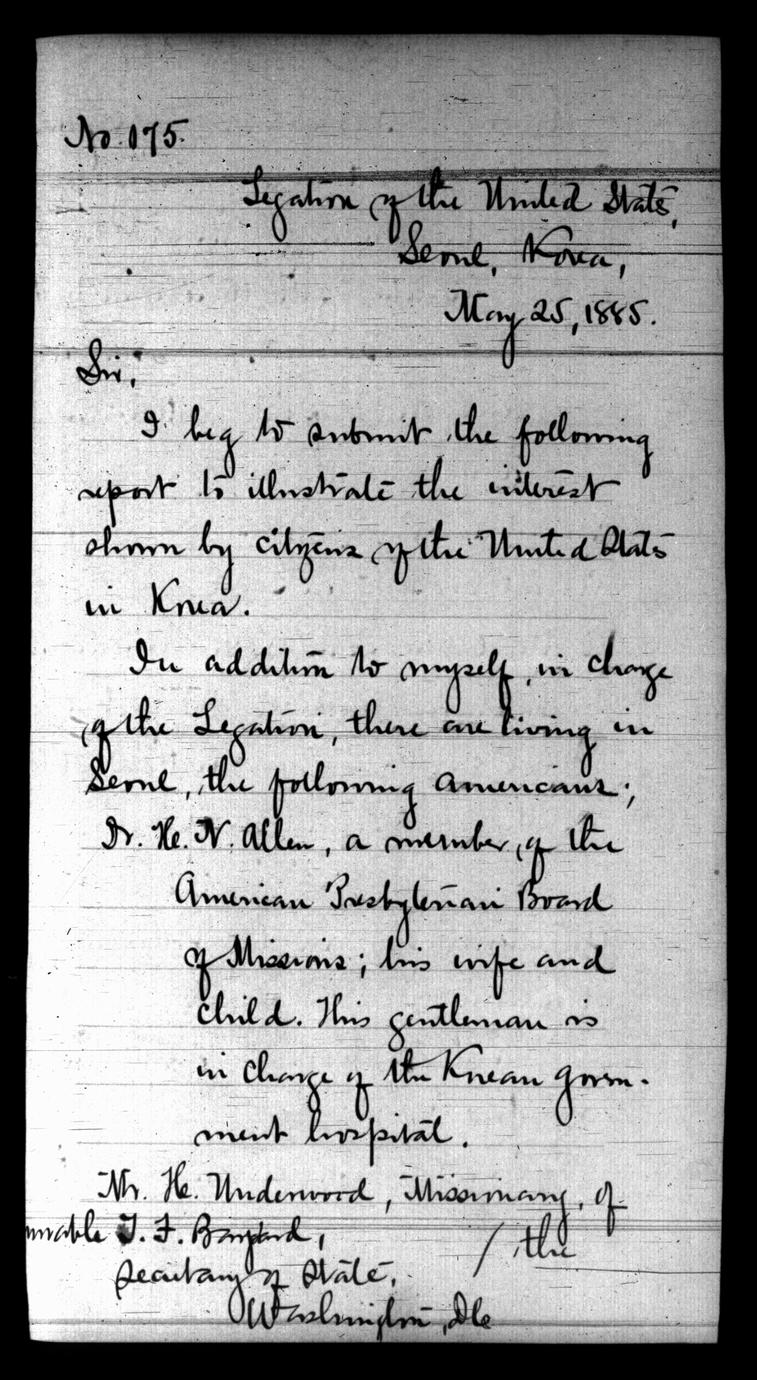 No. 175.
Legation of the United States,
Seoul, Korea,
May 25, 1885.
Sir,
I beg to submit the following
report to illustrate the interest
shown by citizens of the United States
in Korea.
In addition to myself, in charge
of the Legation, there are living in
Seoul, the following Americans;
Dr. H. N. Allen, a member, of the
American Presbyterian Board
of Missions; his wife and
child. This gentleman is
in charge of the Korean govern-
ment hospital.
Mr. H. Underwood, Missionary, of
norable T. F. Bayard,
/ the
Secretary of State,
Washington,